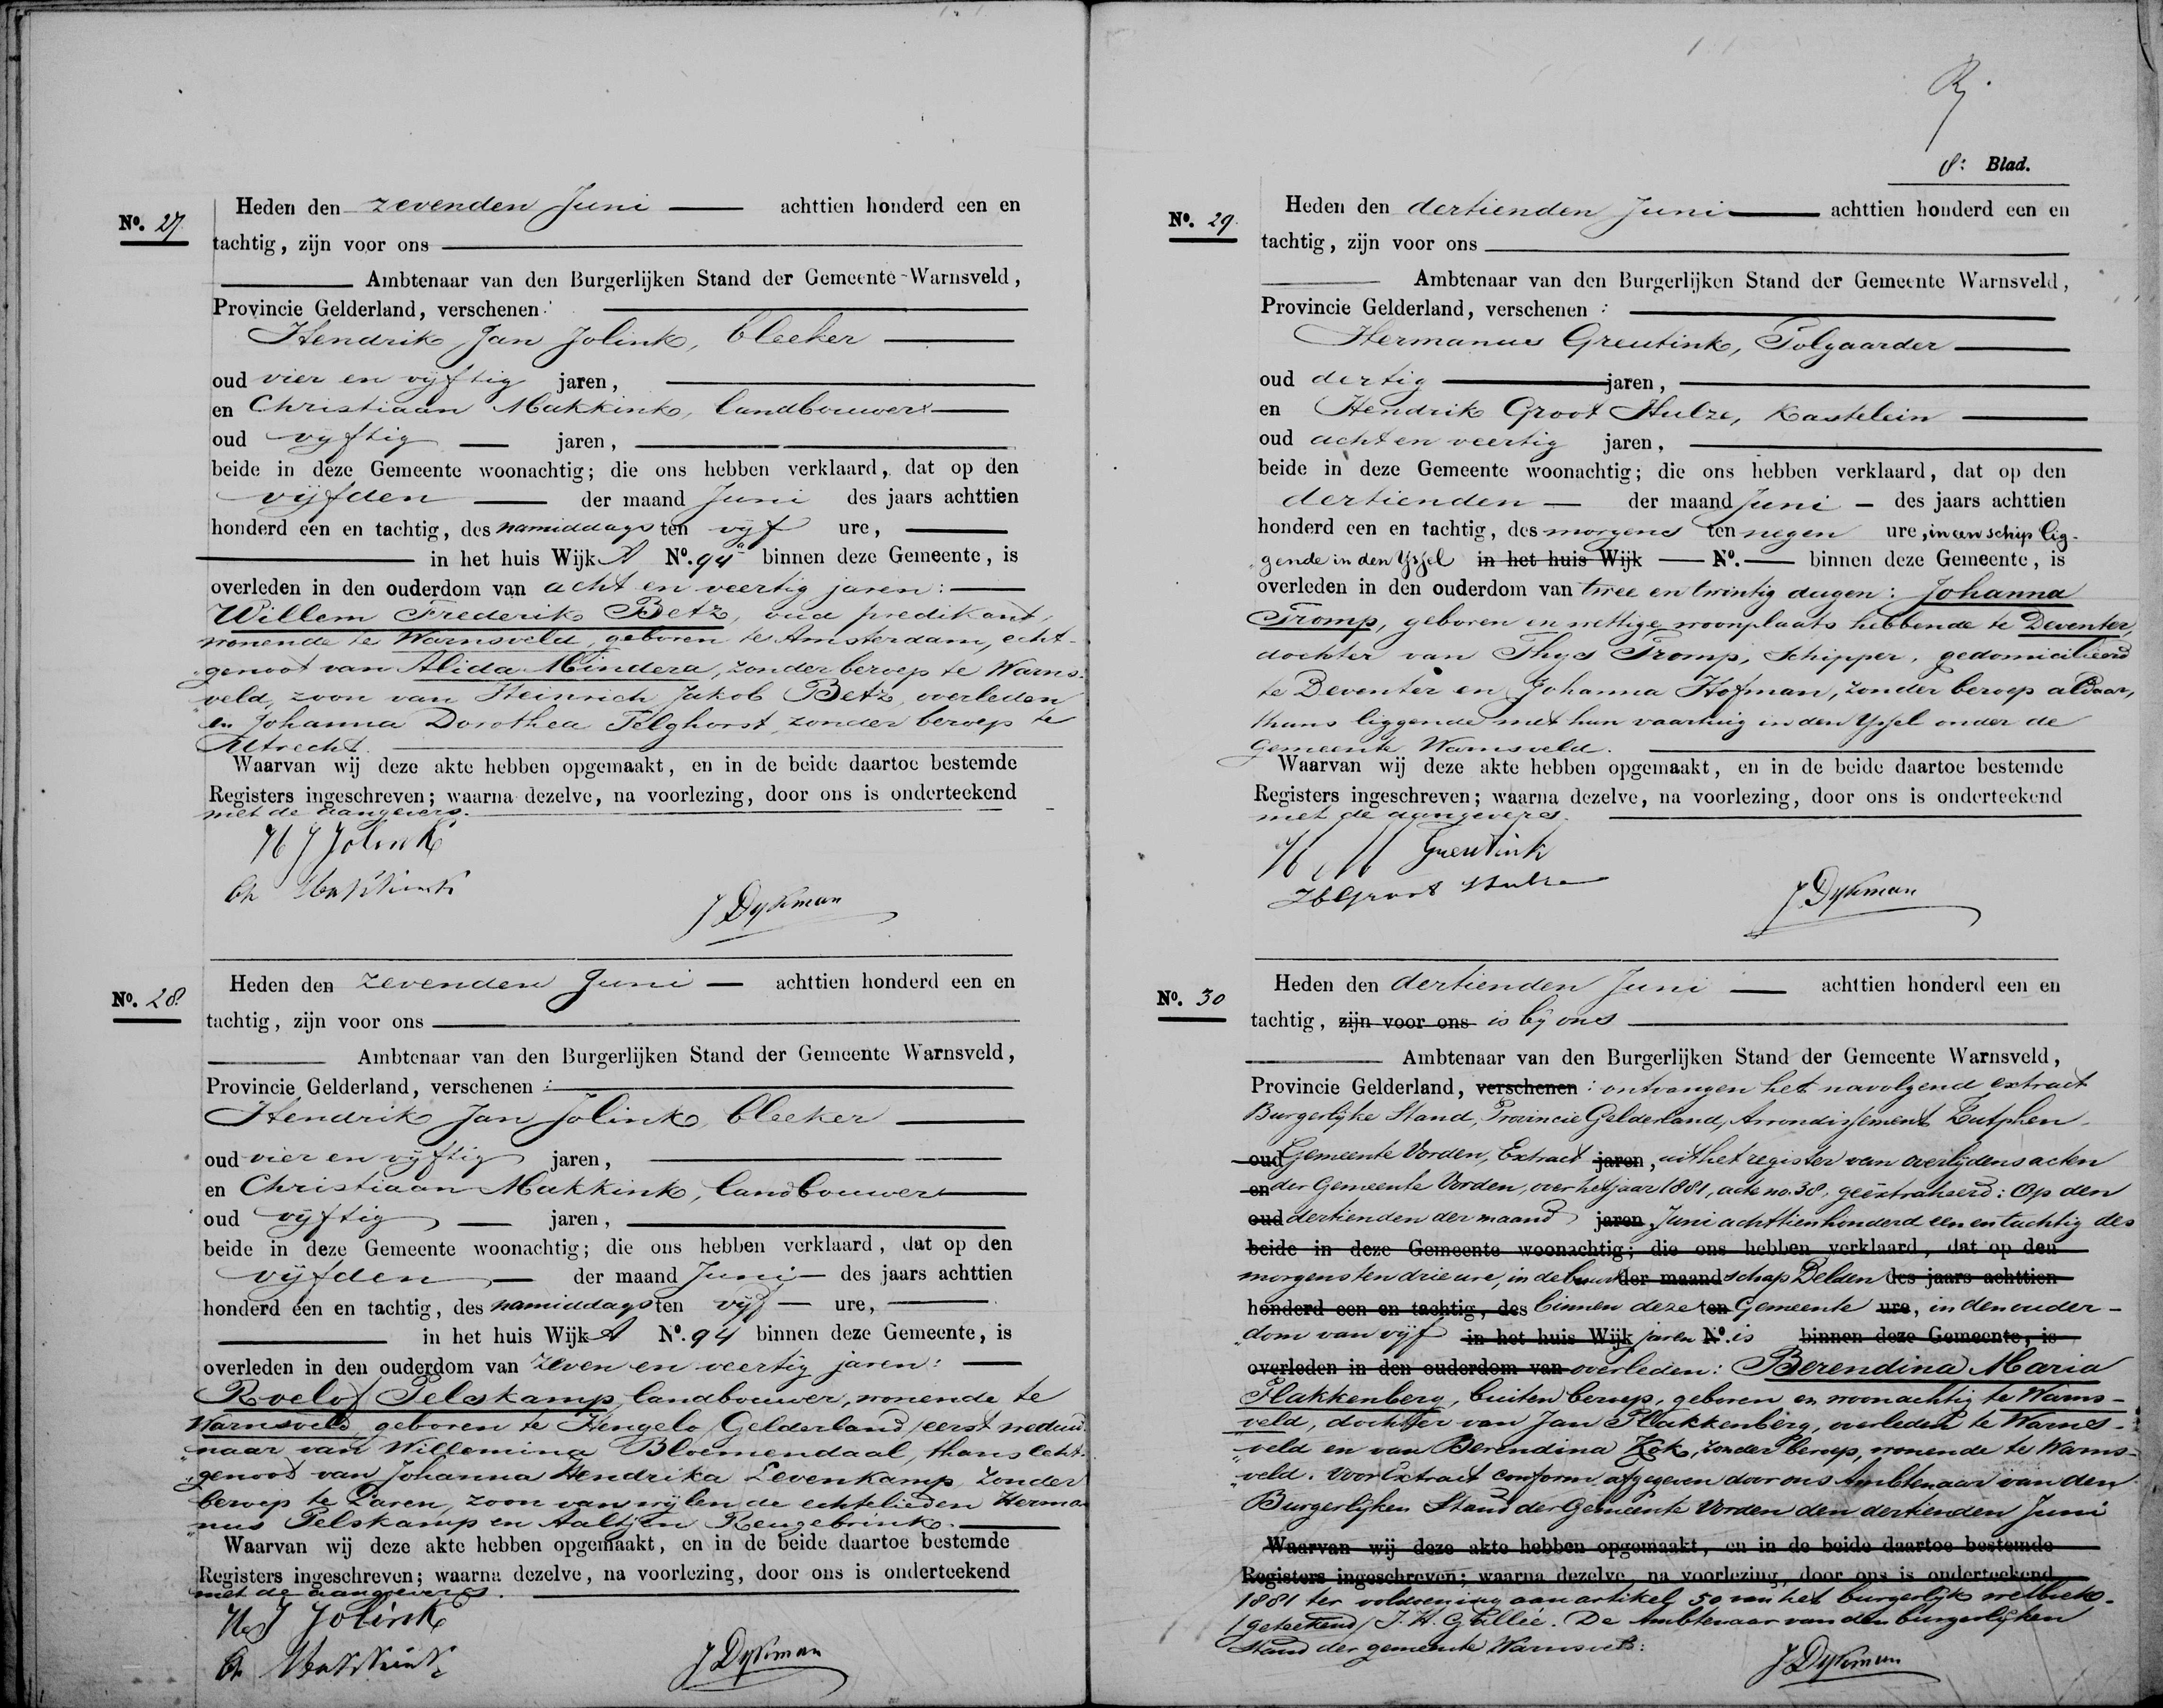 No. 27.
Heden den zevenden Juni achttien honderd een en
tachtig, zijn voor ons
Ambtenaar van den Burgerlijken Stand der Gemeente Warnsveld,
Provincie Gelderland, verschenen:
Hendrik Jan Jolink, bleeker
oud vier en vijftig jaren,
en Christiaan Makkink, landbouwer
oud vijftig jaren,
beide in deze Gemeente woonachtig; die ons hebben verklaard, dat op den
vijfden der maand Juni des jaars achttien
honderd een en tachtig, des namiddags ten vijf ure,
in het huis Wijk A No. 94a binnen deze Gemeente, is
overleden in den ouderdom van acht en veertig jaren:
Willem Frederik Betz, oud predikant,
wonende te Warnsveld, geboren te Amsterdam, echt-
genoot van Alida Mindera, zonder beroep te Warns-
veld, zoon van Heinrich Jakob Betz, overleden
en Johanna Dorothea Telghorst, zonder beroep te
Utrecht.
Waarvan wij deze akte hebben opgemaakt, en in de beide daartoe bestemde
Registers ingeschreven; waarna dezelve, na voorlezing, door ons is onderteekend
met de aangevers.
H J Jolink
Ch Makkink
J Dykman
No. 28.
Heden den zevenden Juni achttien honderd een en
tachtig, zijn voor ons
Ambtenaar van den Burgerlijken Stand der Gemeente Warnsveld,
Provincie Gelderland, verschenen:
Hendrik Jan Jolink, bleeker
oud vier en vijftig jaren,
en Christiaan Makkink, landbouwer
oud vijftig jaren,
beide in deze Gemeente woonachtig; die ons hebben verklaard, dat op den
vijfden der maand Juni des jaars achttien
honderd een en tachtig, des namiddags ten vijf ure,
in het huis Wijk A No. 94 binnen deze Gemeente, is
overleden in den ouderdom van zeven en veertig jaren:
Roelof Pelskamp, landbouwer, wonende te
Warnsveld geboren te Hengelo /Gelderland/ eerst weduw-
naar van Willemina Bloemendaal, thans echt-
genoot van Johanna Hendrika Levenkamp zonder
beroep te Laren, zoon van wijlen de echtelieden Herma
nus Pelskamp en Aaltjen Reugebrink.
Waarvan wij deze akte hebben opgemaakt, en in de beide daartoe bestemde
Registers ingeschreven; waarna dezelve, na voorlezing, door ons is onderteekend
met de aangevers.
H J Jolink
Ch Makkink
J Dykman
8: Blad.
No. 29.
Heden den dertienden Juni achttien honderd een en
tachtig, zijn voor ons
Ambtenaar van den Burgerlijken Stand der Gemeente Warnsveld,
Provincie Gelderland, verschenen:
Hermanus Greutink, Tolgaarder
oud dertig jaren,
en Hendrik Groot Hulze, Kastelein
oud acht en veertig jaren,
beide in deze Gemeente woonachtig; die ons hebben verklaard, dat op den
dertienden der maand Juni des jaars achttien
honderd een en tachtig, des morgens ten negen ure, in een schip lig-
gende in den Yssel in het huis Wijk No. binnen deze Gemeente, is
overleden in den ouderdom van twee en twintig dagen: Johanna
Tromp, geboren en wettige woonplaats hebbende te Deventer,
dochter van Thys Tromp, Schipper, gedomicilieerd
te Deventer en Johanna Hofman, zonder beroep aldaar,
thans liggende met hun vaartuig in den Yssel onder de
Gemeente Warnsveld.
Waarvan wij deze akte hebben opgemaakt, en in de beide daartoe bestemde
Registers ingeschreven; waarna dezelve, na voorlezing, door ons is onderteekend
met de aangevers.
H M Greutink
H Groot Hulze
J Dykman
No. 30
Heden den dertienden Juni achttien honderd een en
tachtig, zijn voor ons is bij ons
Ambtenaar van den Burgerlijken Stand der Gemeente Warnsveld,
Provincie Gelderland, verschenen: ontvangen het navolgend extract
Burgerlijke Stand, Provincie Gelderland, Arrondissement Zutphen.
oud Gemeente Vorden, Extract jaren, uit het register van overlijdensacten
en der Gemeente Vorden, over het jaar 1881, acte no. 38, geëxtraheerd: Op den
oud dertienden der maand jaren, Juni achttienhonderd een en tachtig des
beide in deze Gemeente woonachtig; die ons hebben verklaard, dat op den
morgens ten drie ure, in de buurt der maand schap Delden des jaars achttien
honderd een en tachtig, des binnen deze ten Gemeente ure, in den ouder-
dom van vijf in het huis Wijk jaren No. is binnen deze Gemeente, is
overleden in den ouderdom van overleden: Berendina Maria
Flakkenberg, buiten beroep, geboren en woonachtig te Warns-
veld, dochter van Jan Flakkenberg, overleden te Warns-
veld en van Berendina Kok, zonder beroep, wonende te Warns-
veld. Voor Extract conform afgegeven door ons Ambtenaar van den
Burgerlijken Stand der Gemeente Vorden den dertienden Juni
Waarvan wij deze akte hebben opgemaakt, en in de beide daartoe bestemde
Registers ingeschreven; waarna dezelve, na voorlezing, door ons is onderteekend
1881 ter voldoening aan artikel 50 van het burgerlijk wetboek.
/geteekend/ J. H. Gallée. De Ambtenaar van den burgerlijken
Stand der gemeente Warnsveld:
J Dykman